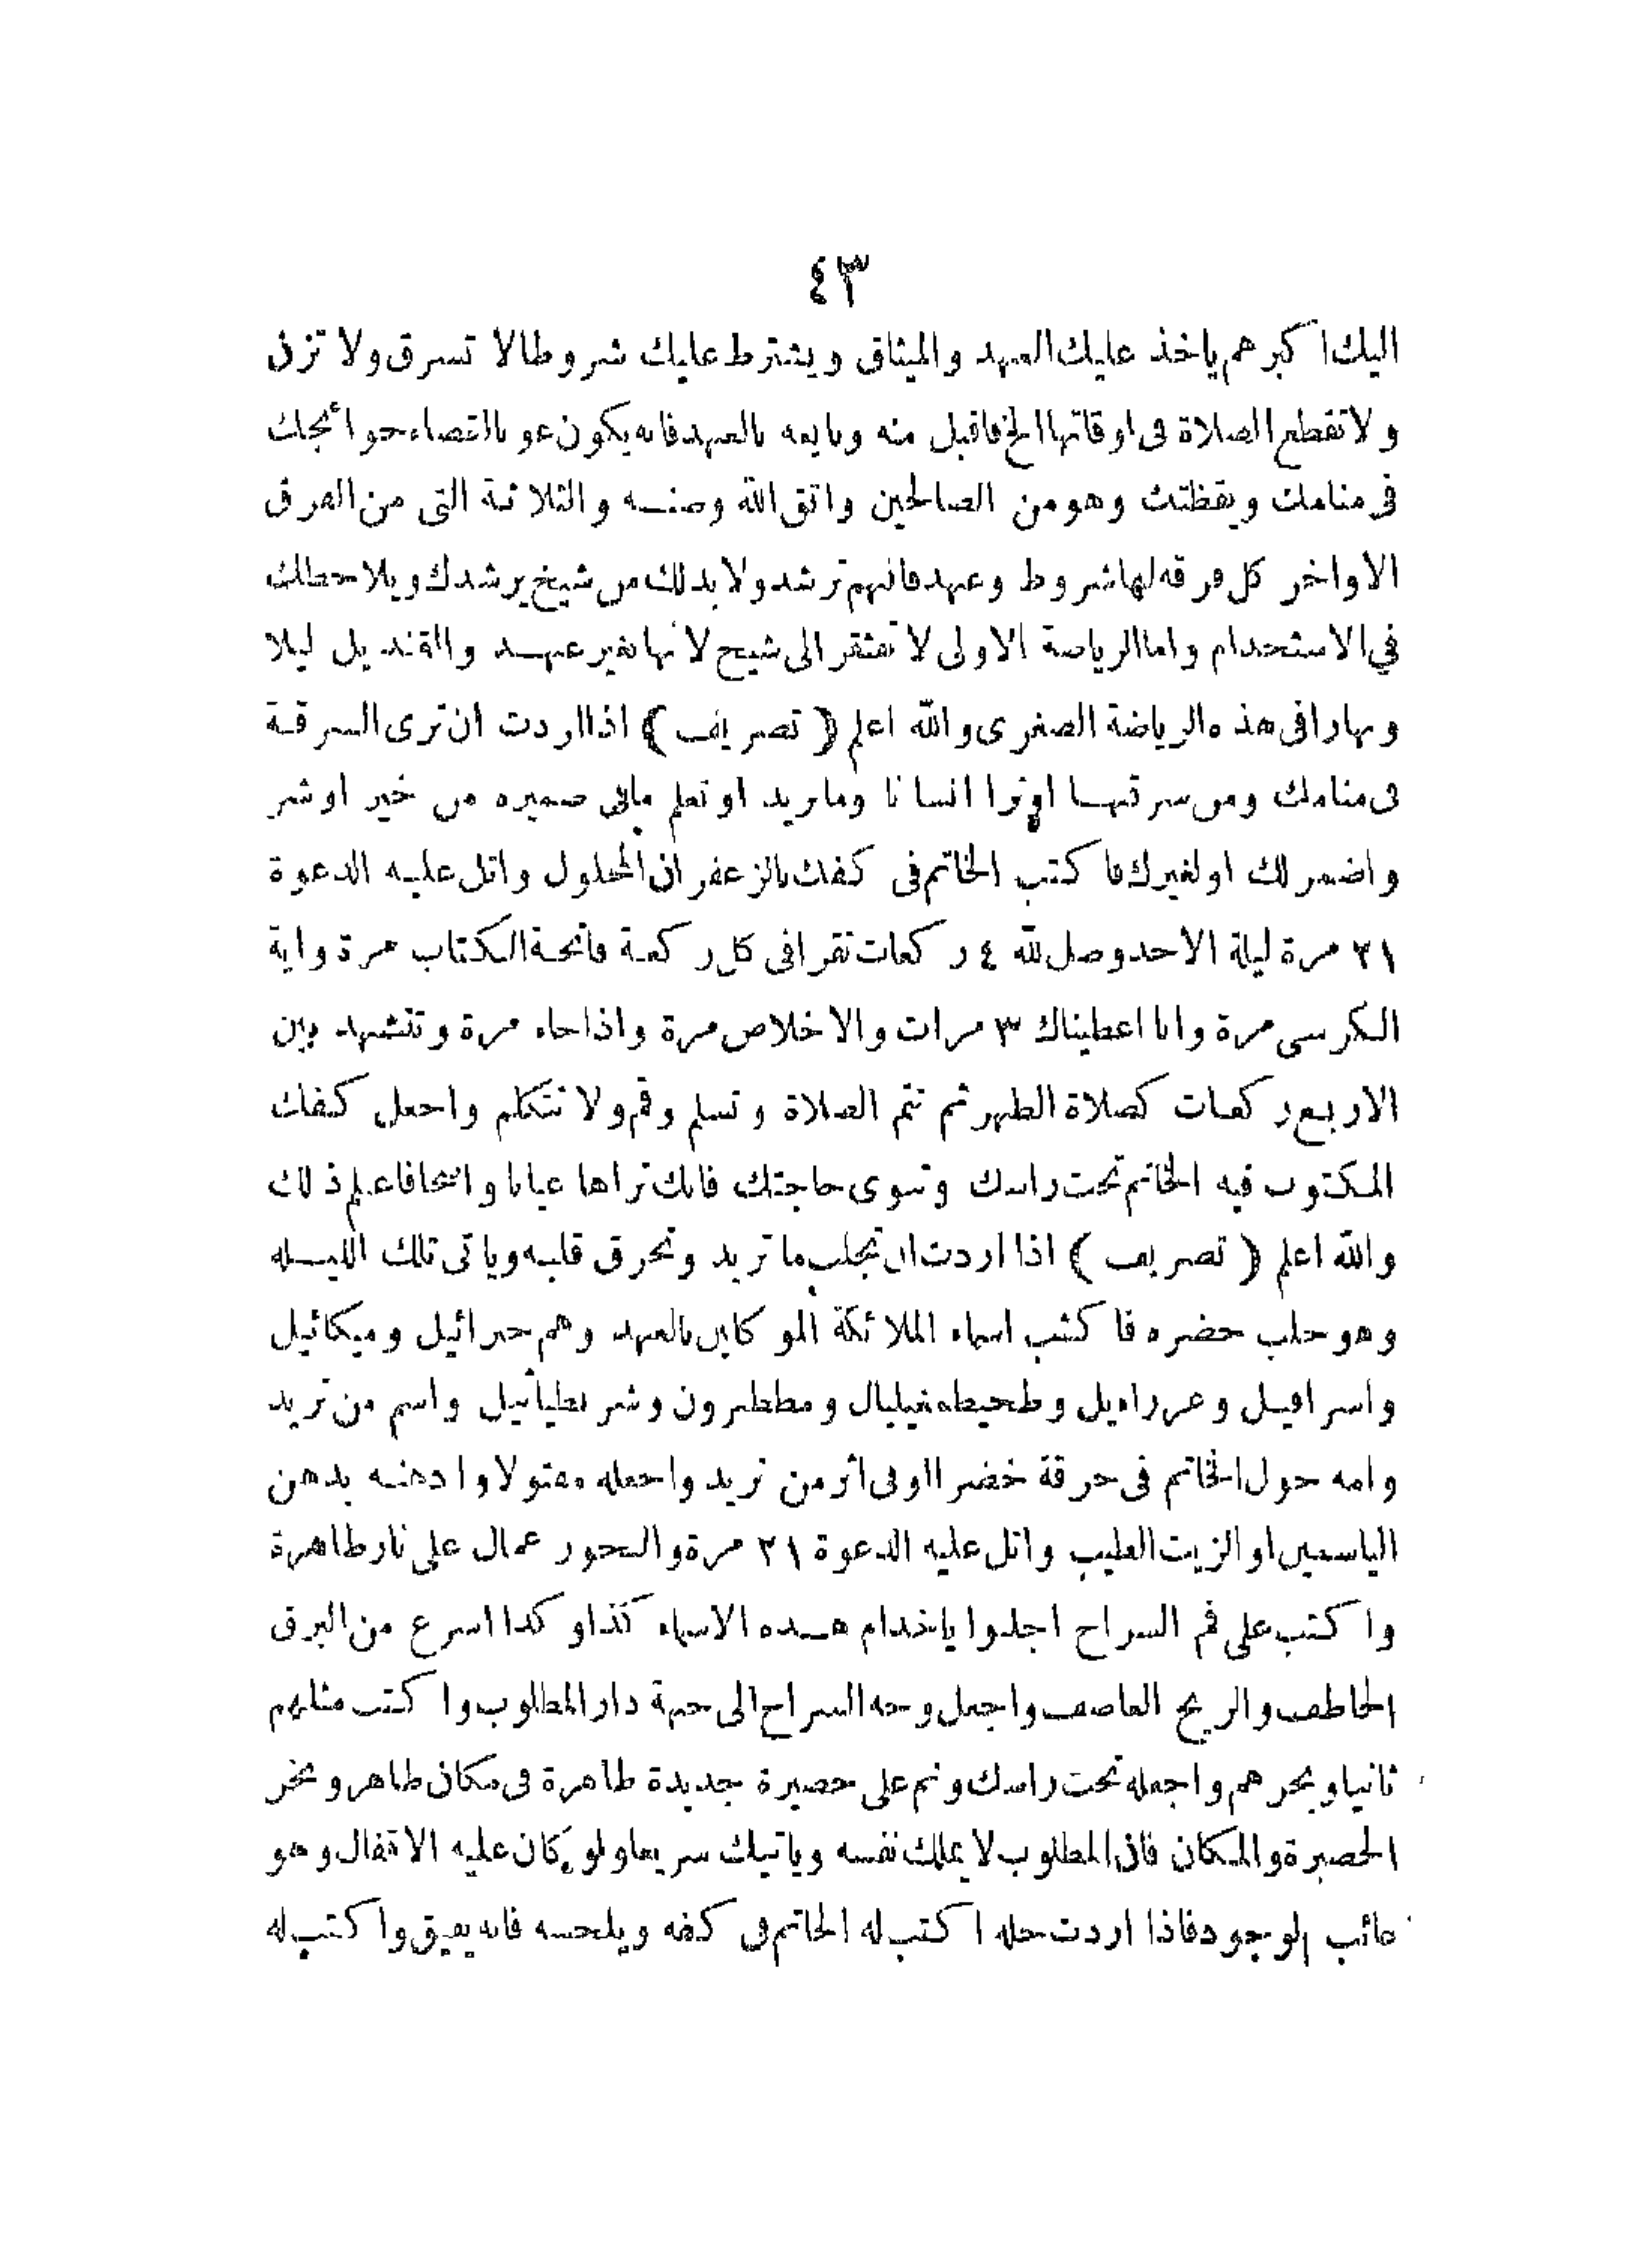 ٤٣
اليك اكبرهم ياخذ عليك العهد والميثاق ويشترط عليك شروطا لا تسرق ولا تزن
ولا تقطع الصلاة فى اوقاتها الخ فاقبل منه وبايعه بالعهد فانه يكون عونا لقضاء حوائجك
فى منامك ويقظتك وهو من الصالحين واتق الله وصنه والثلاثة التى من الفرق
الاواخر كل فرقه لها شروط وعهد فافهم ترشد ولا بد لك من شيخ يرشدك ويلاحظك
في الاستخدام واما الرياضة الاولى لا تفتقر الى شيخ لانها بغير عهد والقنديل ليلا
ونهارا فى هذه الرياضة الصغرى والله اعلم ( تصريف ) اذا اردت ان ترى السرقة
فى منامك ومن سرقها او ترا انسانا وما يريد او تعلم مافى ضميره من خير او شر
واضمر لك او لغيرك فاكتب الخاتم فى كفك بالزعفران المحلول واتل عليه الدعوة
٢١ مرة ليلة الاحد وصل لله ٤ ركعات تقرا فى كل ركعة فاتحة الكتاب مرة واية
الكرسى مرة وانا اعطيناك ٣ مرات والاخلاص مرة واذا جاء مرة وتتشهد بين
الاربع ركعات كصلاة الظهر ثم تتم الصلاة وتسلم وقم ولا تتكلم واجعل كفك
المكتوب فيه الخاتم تحت راسك وتنوى حاجتك فانك تراها عيانا واضحا فاعلم ذلك
والله اعلم ( تصريف ) اذا اردت ان تجلب ما تريد وتحرق قلبه وياتى تلك الليله
وهو جلب حضره فاكتب اسماء الملائكة الموكلين بالعهد وهم جبرائيل وميكائيل
واسرافيل وعزرائيل وطحيطمغيليال ومططرون وشرنطيائيل واسم من تريد
وامه حول الخاتم فى خرقة خضرا او فى اثر من تريد واجعله مفتولا وادهنه بدهن
الياسمين او الزيت الطيب واتل عليه الدعوة ٢١ مرة والبخور عمال على نار طاهرة
واكتب على فم السراج اجلبوا ياخدام هذه الاسماء كذا وكذا اسرع من البرق
الخاطف والريح العاصف واجعل وجه السراج الى جهة دار المطلوب واكتب مثلهم
ثانيا وبخرهم واجعله تحت راسك ونم على حصيرة جديدة طاهرة فى مكان طاهر وبخر
الحصيرة والمكان فان المطلوب لا يملك نفسه وياتيك سريعا ولو كان عليه الاقفال وهو
غائب الوجود فاذا اردت حله اكتب له الخاتم فى كفه ويلحسه فانه يفيق واكتب له